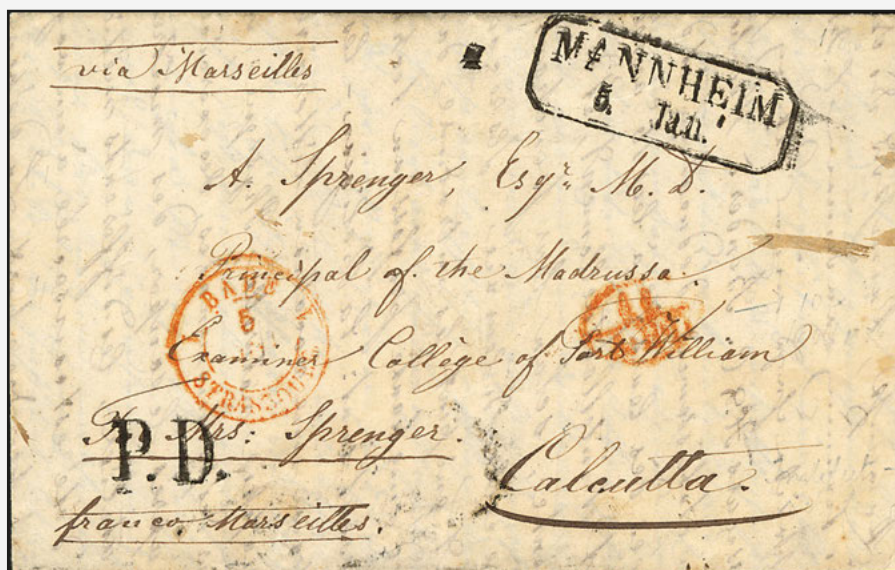 via Marseilles
MANNHEIM
5. Jan.
A. Sprenger, Esqre. M. D.
Principal of the Madrussa.
BADE
5
STRASBOURG
Examiner College of Fort William
For Mrs: Sprenger.
P.D.
Calcutta.
franco Marseilles.